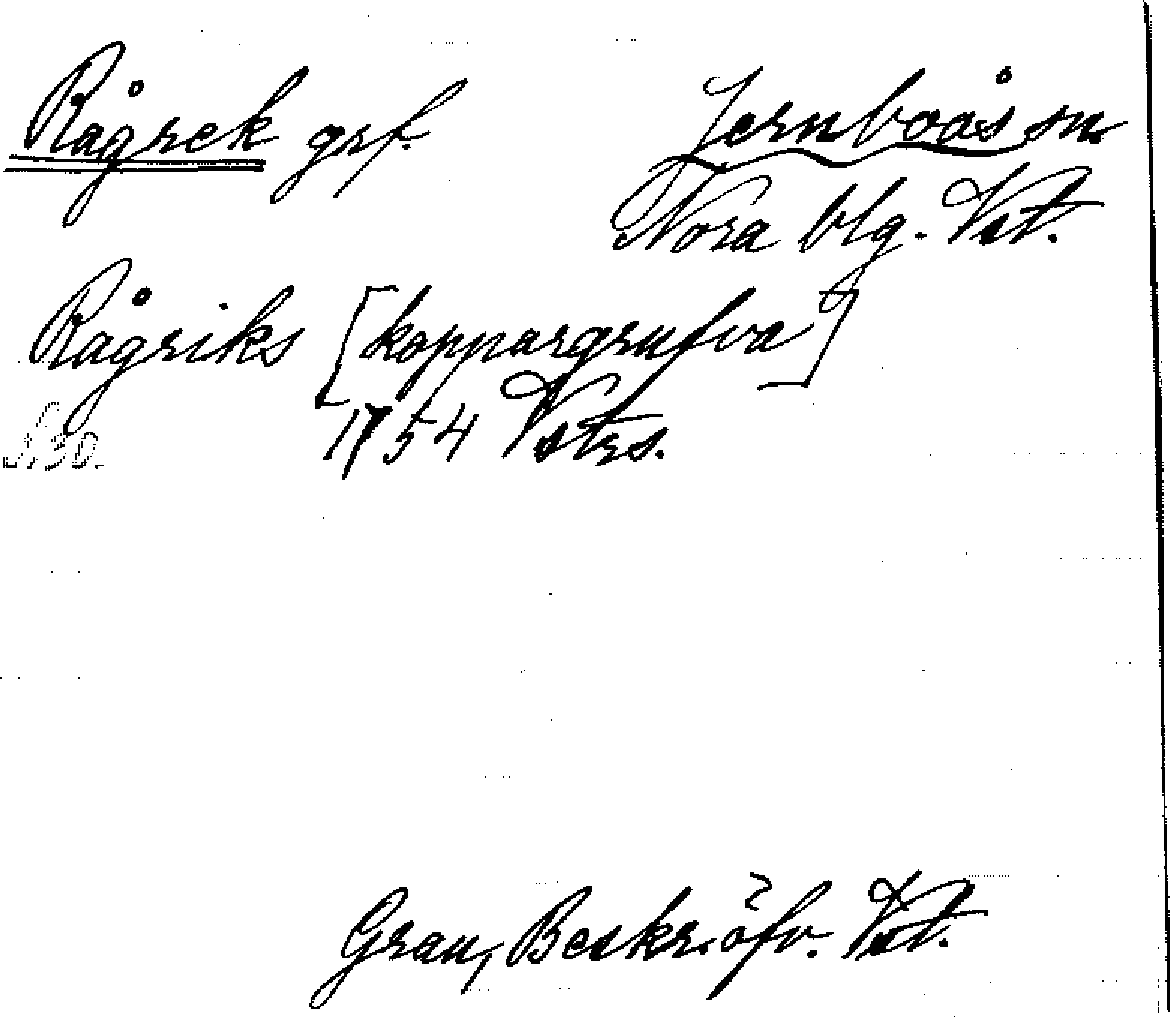 Rågrek grf. Jernboås sn
Nora blg. Vst.
Rågriks [koppargrufva]
1754 Vstrs.
Grau, Beskr. öfv. Vst.